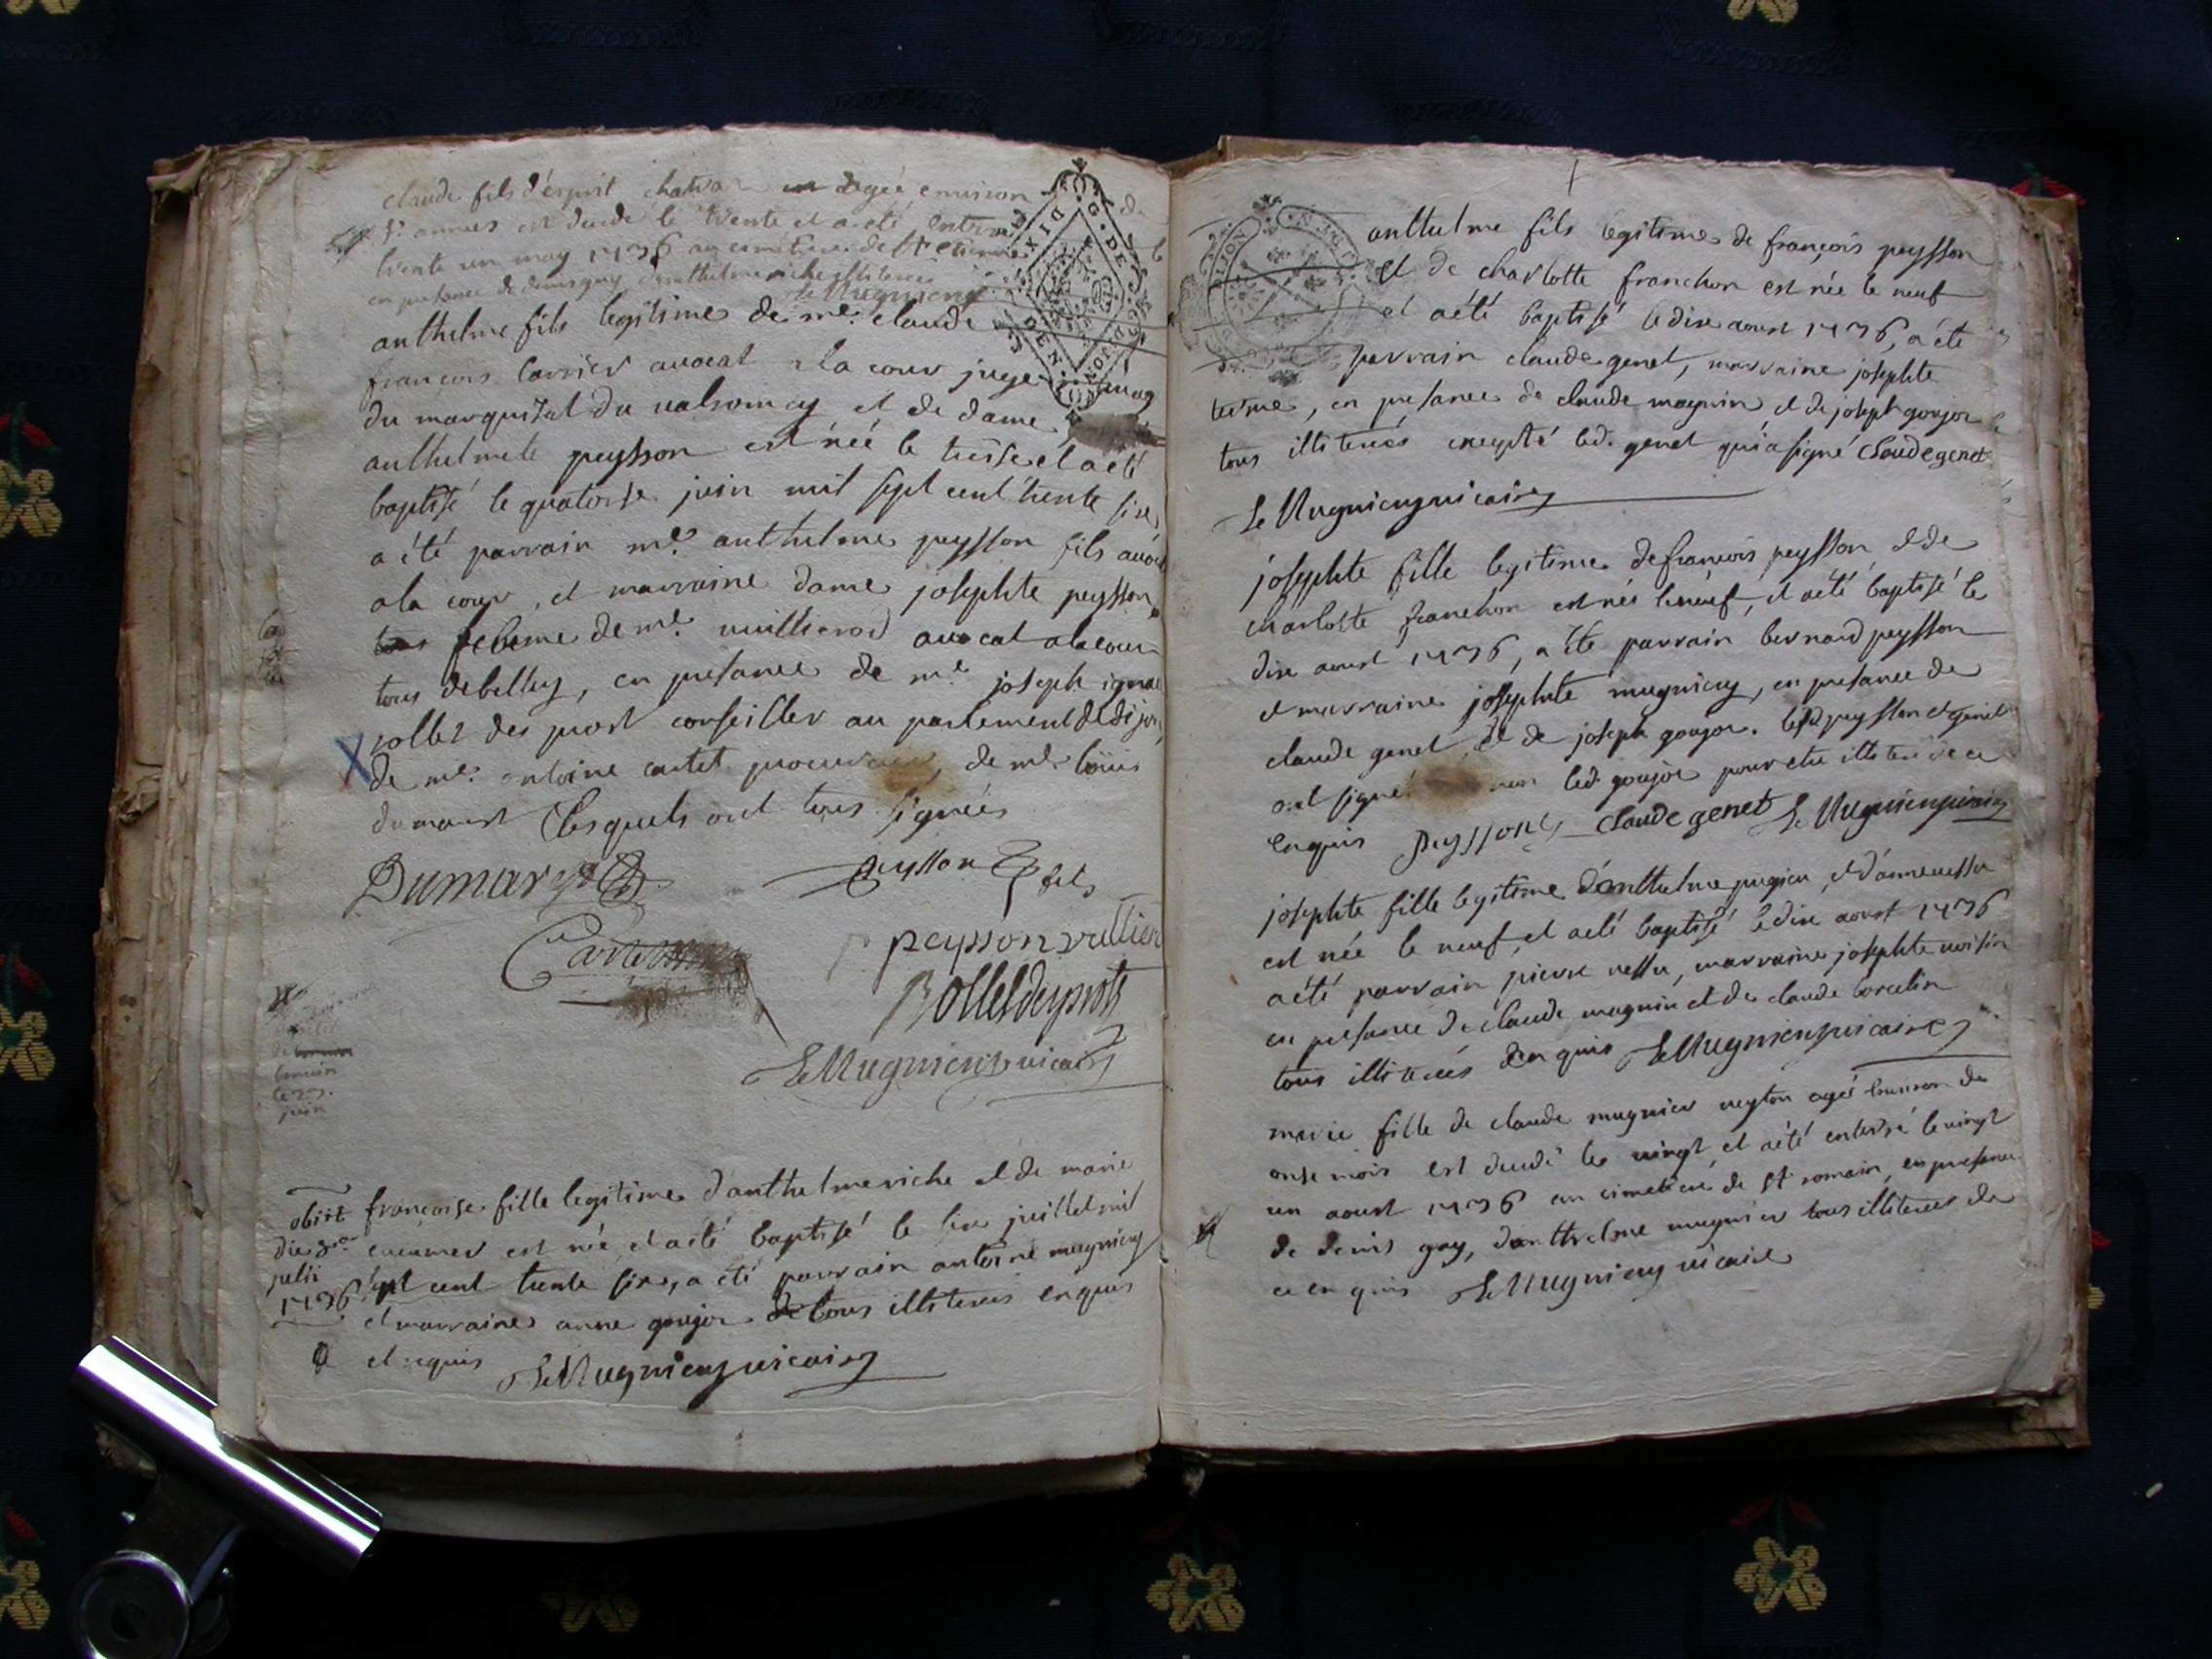 claude fils d'esprit agée environ
annees est decede le trente et a eté enterré
trente un may 1736 au cimetiere de St etienne
en presance de denis guy d'anthelme riche illiterés
Le Mugnieny
anthelme fils legitime de me. claude
francois carrier avocat a la cour juge
du marquisat du valromey et de dame
anthelmete peysson est née le treise et a eté
baptisé le quatorse juin mil sept cent trente six,
a été parrain me. anthelme peysson fils avocat
a la cour, et marraine dame josephte peysson
feme de me. avocat a la cour
tous de belley, en presance de me. joseph ignace
rollet des prost conseiller au parlement de dijon,
de me. antoine cartet procureur, de me. loüis
dumarest lesquels ont tous signés
Dumarest
peysson fils
peysson
Rolletdesprosts
Le Mugnieny vicaire
le 23.
juin
obiit
die 8a
julii
1736
francoise fille legitime d'anthelme riche et de marie
est née et a eté baptisé le six juillet mil
sept cent trente six, a été parrain antoine mugnieny
et marraine anne goujon de tous illiterés enquis
et requis Le Mugnieny vicaire
DIJON
anthelme fils legitime de françois peysson
et de charlotte franchon est née le neuf
et a eté baptisé le dix aoust 1736, a été
parrain claude genet, marraine josephte
en presance de claude magnin et de joseph goujon
tous illiterés excepté led. genet qui a signé Claude genet
Le Mugnieny vicaire
josephte fille legitime de francois peysson et de
charlotte franchon est née le neuf, et a eté baptisé le
dix aoust 1736, a eté parrain bernard peysson
et marraine josephte mugnieny, en presance de
claude genet et de joseph goujon. led. peysson et genet
ont signé non led. goujon pour etre illiteré de ce
enquis Peysson claude genet Le Mugnieny vicaire
josephte fille legitime d'anthelme et d'anne
est née le neuf et a eté baptisé le dix aoust 1736
a été parrain pierre marraine josephte voisin
en presance de claude magnin et de claude
tous illiterés enquis Le Mugnieny vicaire
marie fille de claude mugnier agée environ de
onse mois est decedé le vingt et a eté enterré le vingt
un aoust 1736 au cimetiere de St romain, en presance
de denis guy, d'anthelme mugnier tous illiterés de
ce enquis Le Mugnieny vicaire